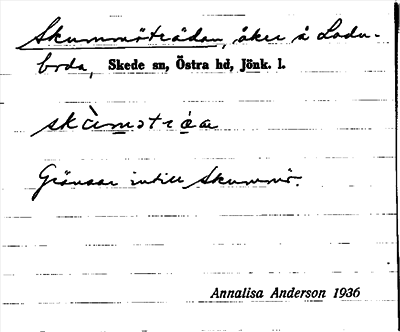 Skummöträdan, åker å Ladu-
boda, Skede sn, Östra hd, Jönk. l.
skùmøtrǻa
Gränsar intill Skummö.
Annalisa Anderson 1936